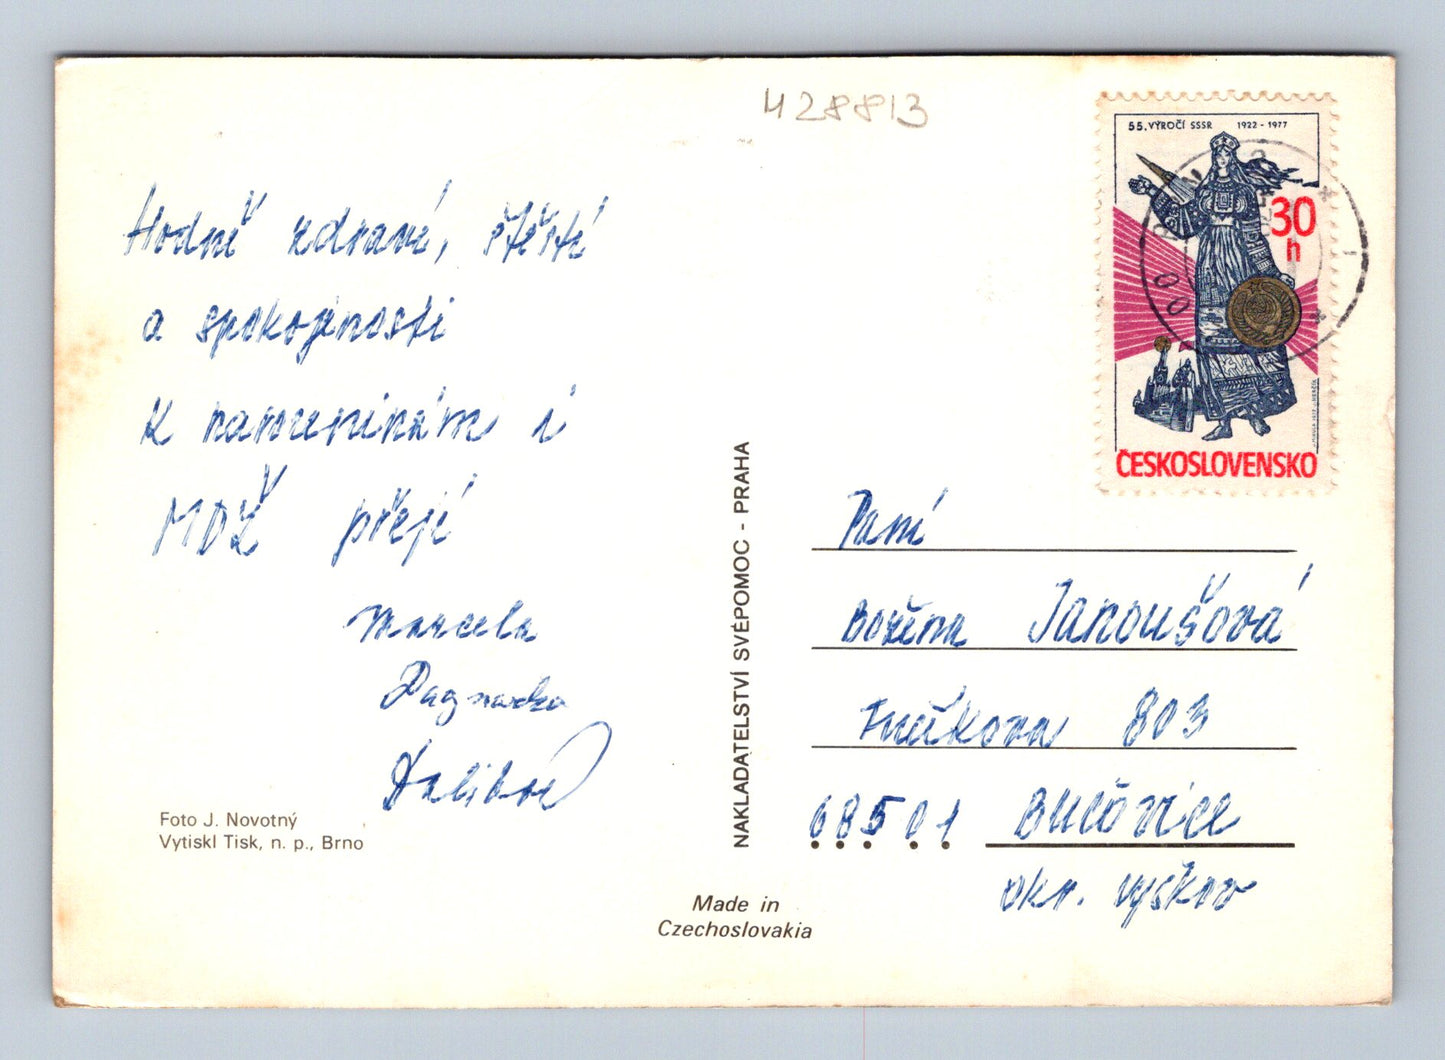 428813
55. VÝROČÍ SSSR 1922 - 1977
30
h
ČESKOSLOVENSKO
Hodně zdraví, štěstí
a spokojenosti
k narozeninám i
MDŽ přejí
Marcela
Dagmarka
Dalibor
Foto J. Novotný
Vytiskl Tisk, n. p., Brno
NAKLADATELSTVÍ SVÉPOMOC - PRAHA
Made in
Czechoslovakia
Paní
Božena Janoušová
803
68501 Bučovice
okr. Vyškov